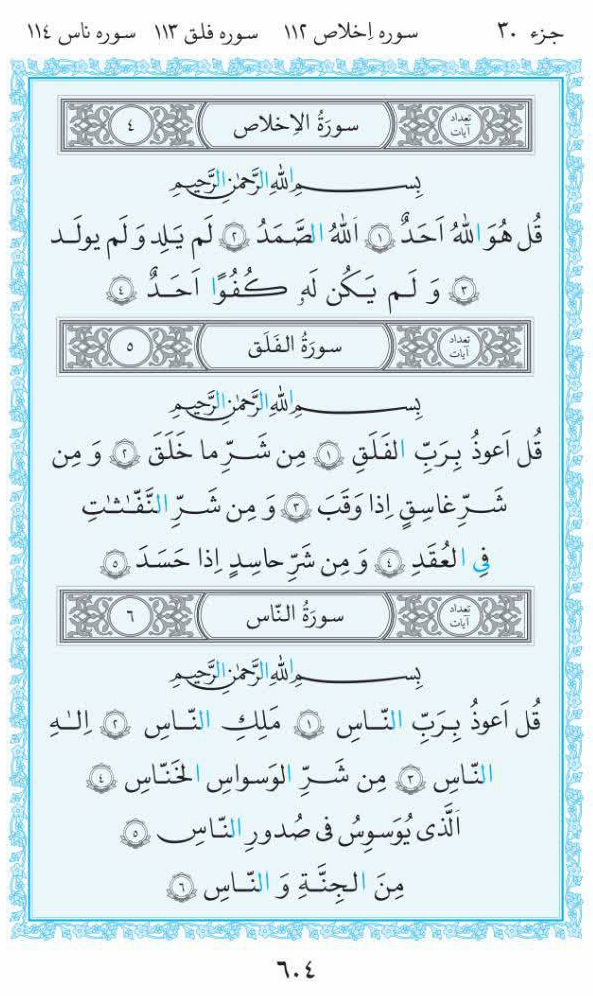 جزء ۳۰ سوره اِخلاص ۱۱۲ سوره فلق ۱۱۳ سوره ناس ۱۱٤
تعداد آیات سورَةُ الاِخلاص ٤
بِسمِ اللهِ الرَّحمٰنِ الرَّحیمِ
قُل هُوَ اللهُ اَحَدٌ ۱ اَللهُ الصَّمَدُ ۲ لَم یَلِد وَ لَم یولَد
۳ وَ لَم یَکُن لَهٗ کُفُوًا اَحَدٌ ٤
تعداد آیات سورَةُ الفَلَق ٥
بِسمِ اللهِ الرَّحمٰنِ الرَّحیمِ
قُل اَعوذُ بِرَبِّ الفَلَقِ ۱ مِن شَرِّ ما خَلَقَ ۲ وَ مِن
شَرِّ غاسِقٍ اِذا وَقَبَ ۳ وَ مِن شَرِّ النَّفّٰثٰتِ
فِی العُقَدِ ٤ وَ مِن شَرِّ حاسِدٍ اِذا حَسَدَ ٥
تعداد آیات سورَةُ النّاس ٦
بِسمِ اللهِ الرَّحمٰنِ الرَّحیمِ
قُل اَعوذُ بِرَبِّ النّاسِ ۱ مَلِكِ النّاسِ ۲ اِلٰهِ
النّاسِ ۳ مِن شَرِّ الوَسواسِ الخَنّاسِ ٤
اَلَّذی یُوَسوِسُ فی صُدورِ النّاسِ ٥
مِنَ الجِنَّةِ وَ النّاسِ ٦
٦۰٤